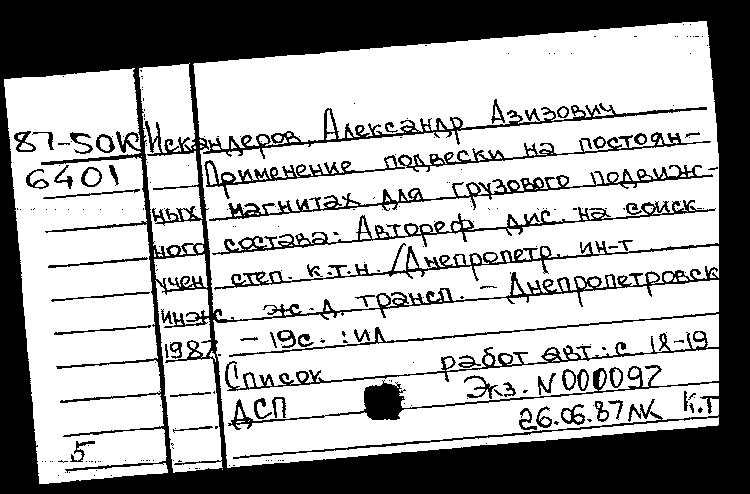 87-5ОК Искандеров, Александр Азизович
6401 Применение подвески на постоян-
ных магнитах для грузового подвиж-
ного состава: Автореф. дис. на соиск
учен. степ. к.т.н. /Днепропетр. ин-т
инж. ж.-д. трансп. - Днепропетровск
1987. - 19с. : ил
Список работ авт.: с 18-19
ДСП Экз. N 000097
26.06.87 К.Т
5